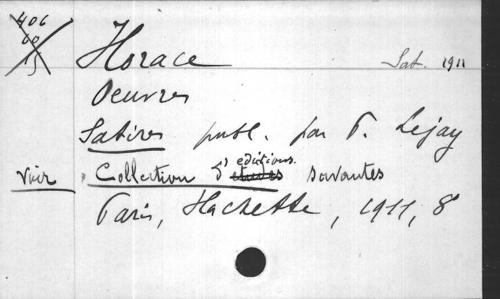 406
60
15
Horace Sat. 1911
Oeuvres
Satires publ. par P. Lejay
Voir Collection d'éditions études savantes
Paris, Hachette, 1911, 8°